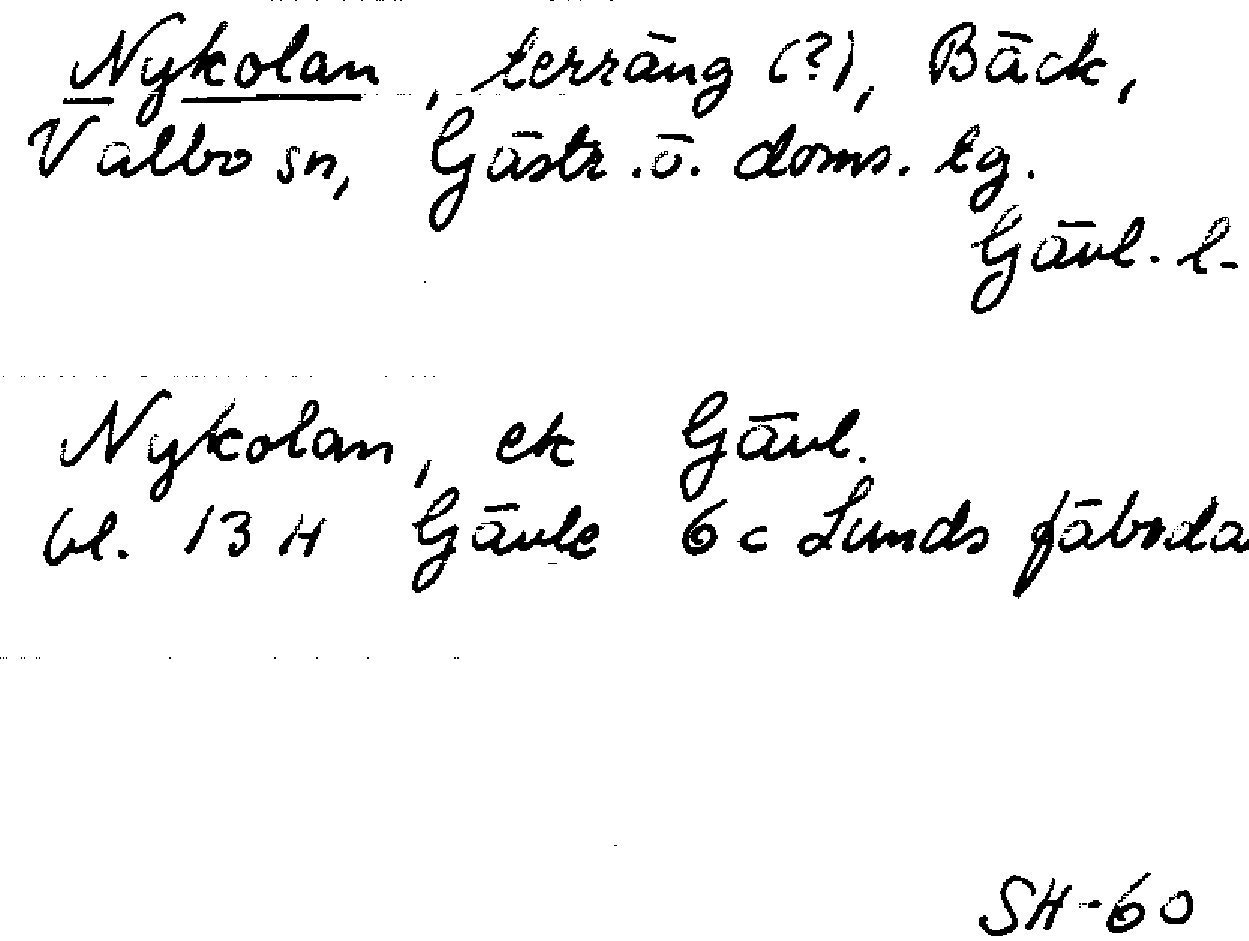 Nykolan, terräng (?), Bäck,
Valbo sn, Gästr. ö. doms. tg.
Gävl. l-
Nykolan, ek Gävl.
bl. 13 H Gävle 6 c Lunds fäboda
SH-60